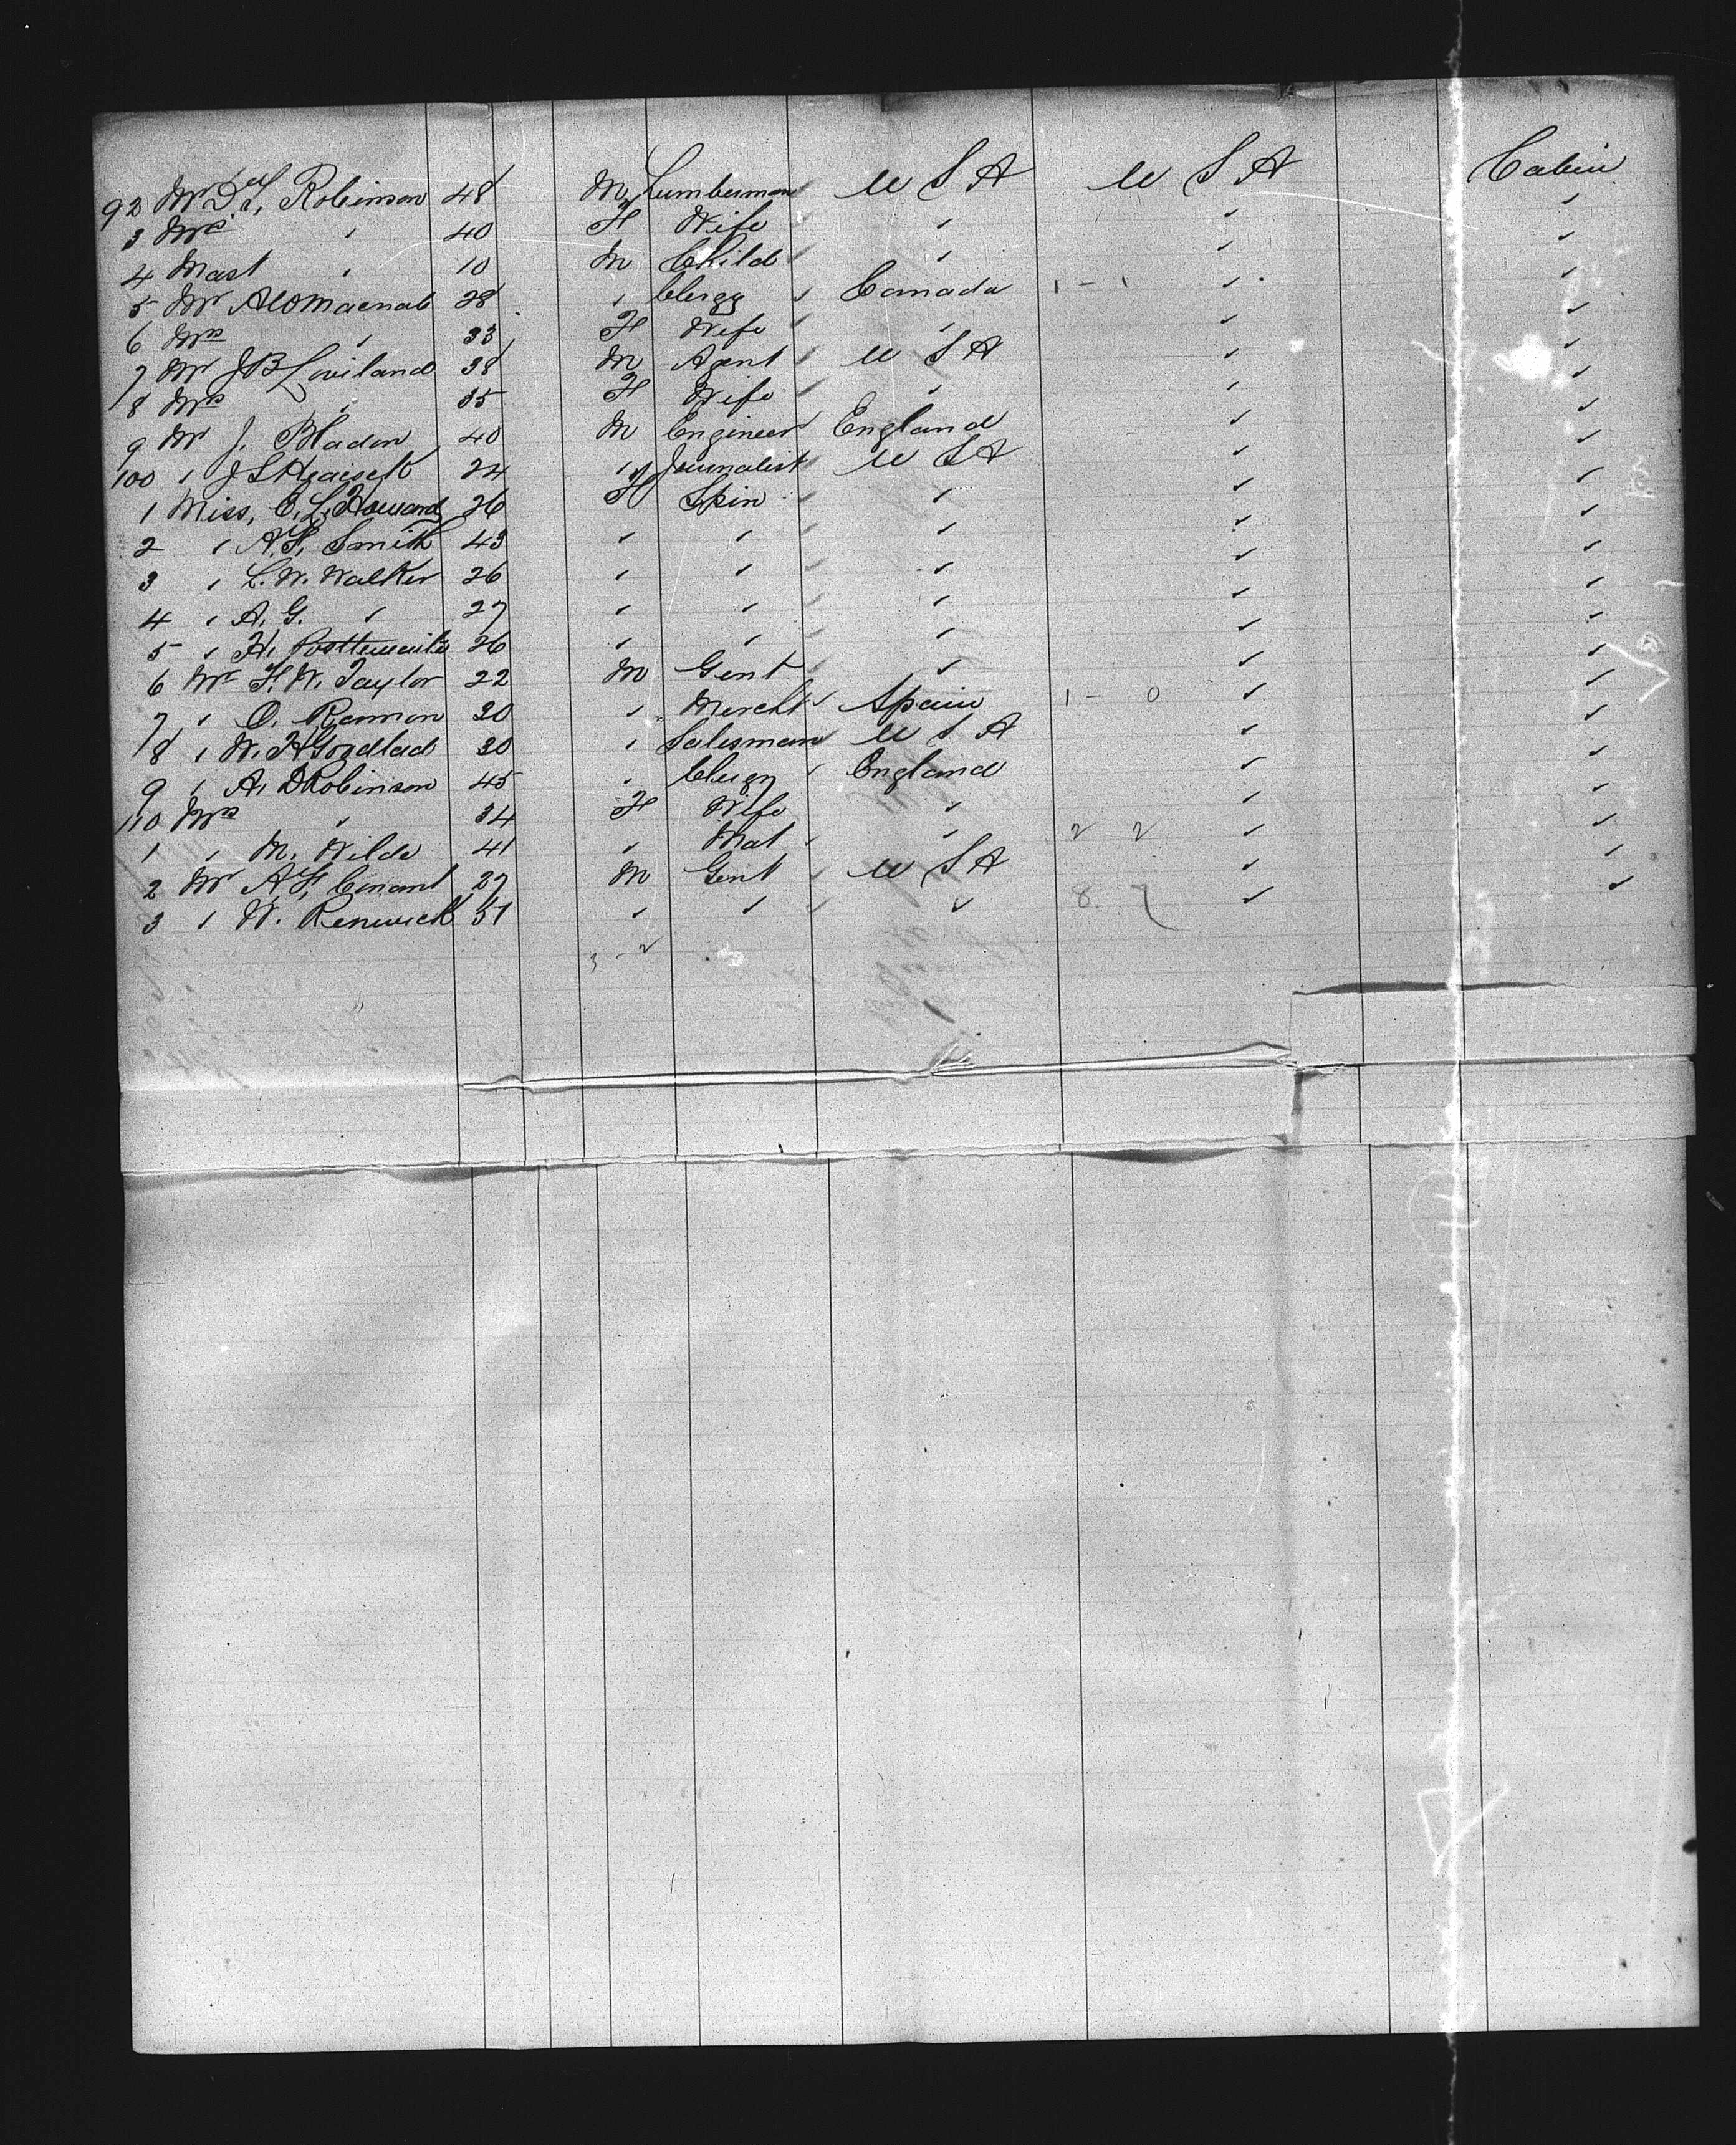 92 Mr D F, Robinson 48 M Lumberman U S A U S A Cabin
3 Mrs " 40 F Wife " " "
4 Mast " 10 M Child " " "
5 Mr Macnab 28 " Clergy " Canada 1 - 1 " "
6 Mrs " 33 F Wife " " "
7 Mr J B Loviland 38 M Agent U S A " "
8 Mrs " 35 F Wife " " "
9 Mr J. Bladon 40 M Engineer England " "
100 " J S 24 " Journalist U S A " "
1 Miss, E. L. Howard 26 F Spin " " "
2 " A. F. Smith 43 " " " " "
3 " L. W. Walker 26 " " " " "
4 " A. G. " 27 " " " " "
5 " H. 26 " " " " "
6 Mr F. W. Taylor 22 M Gent " " "
7 " O. Ramon 30 " Mercht Spain 1 - 0 " "
8 " W. H Goodlad 30 " Salesman U S A " "
9 " A. D Robinson 45 " Clergy England " "
110 Mrs " 34 F Wife " " "
1 " M. Wilde 41 " Mat " 2 2 " "
2 Mr A F, Conant 27 M Gent U S A " "
3 " W. Renwick 51 " " " 8. 7 " "
3 - 2